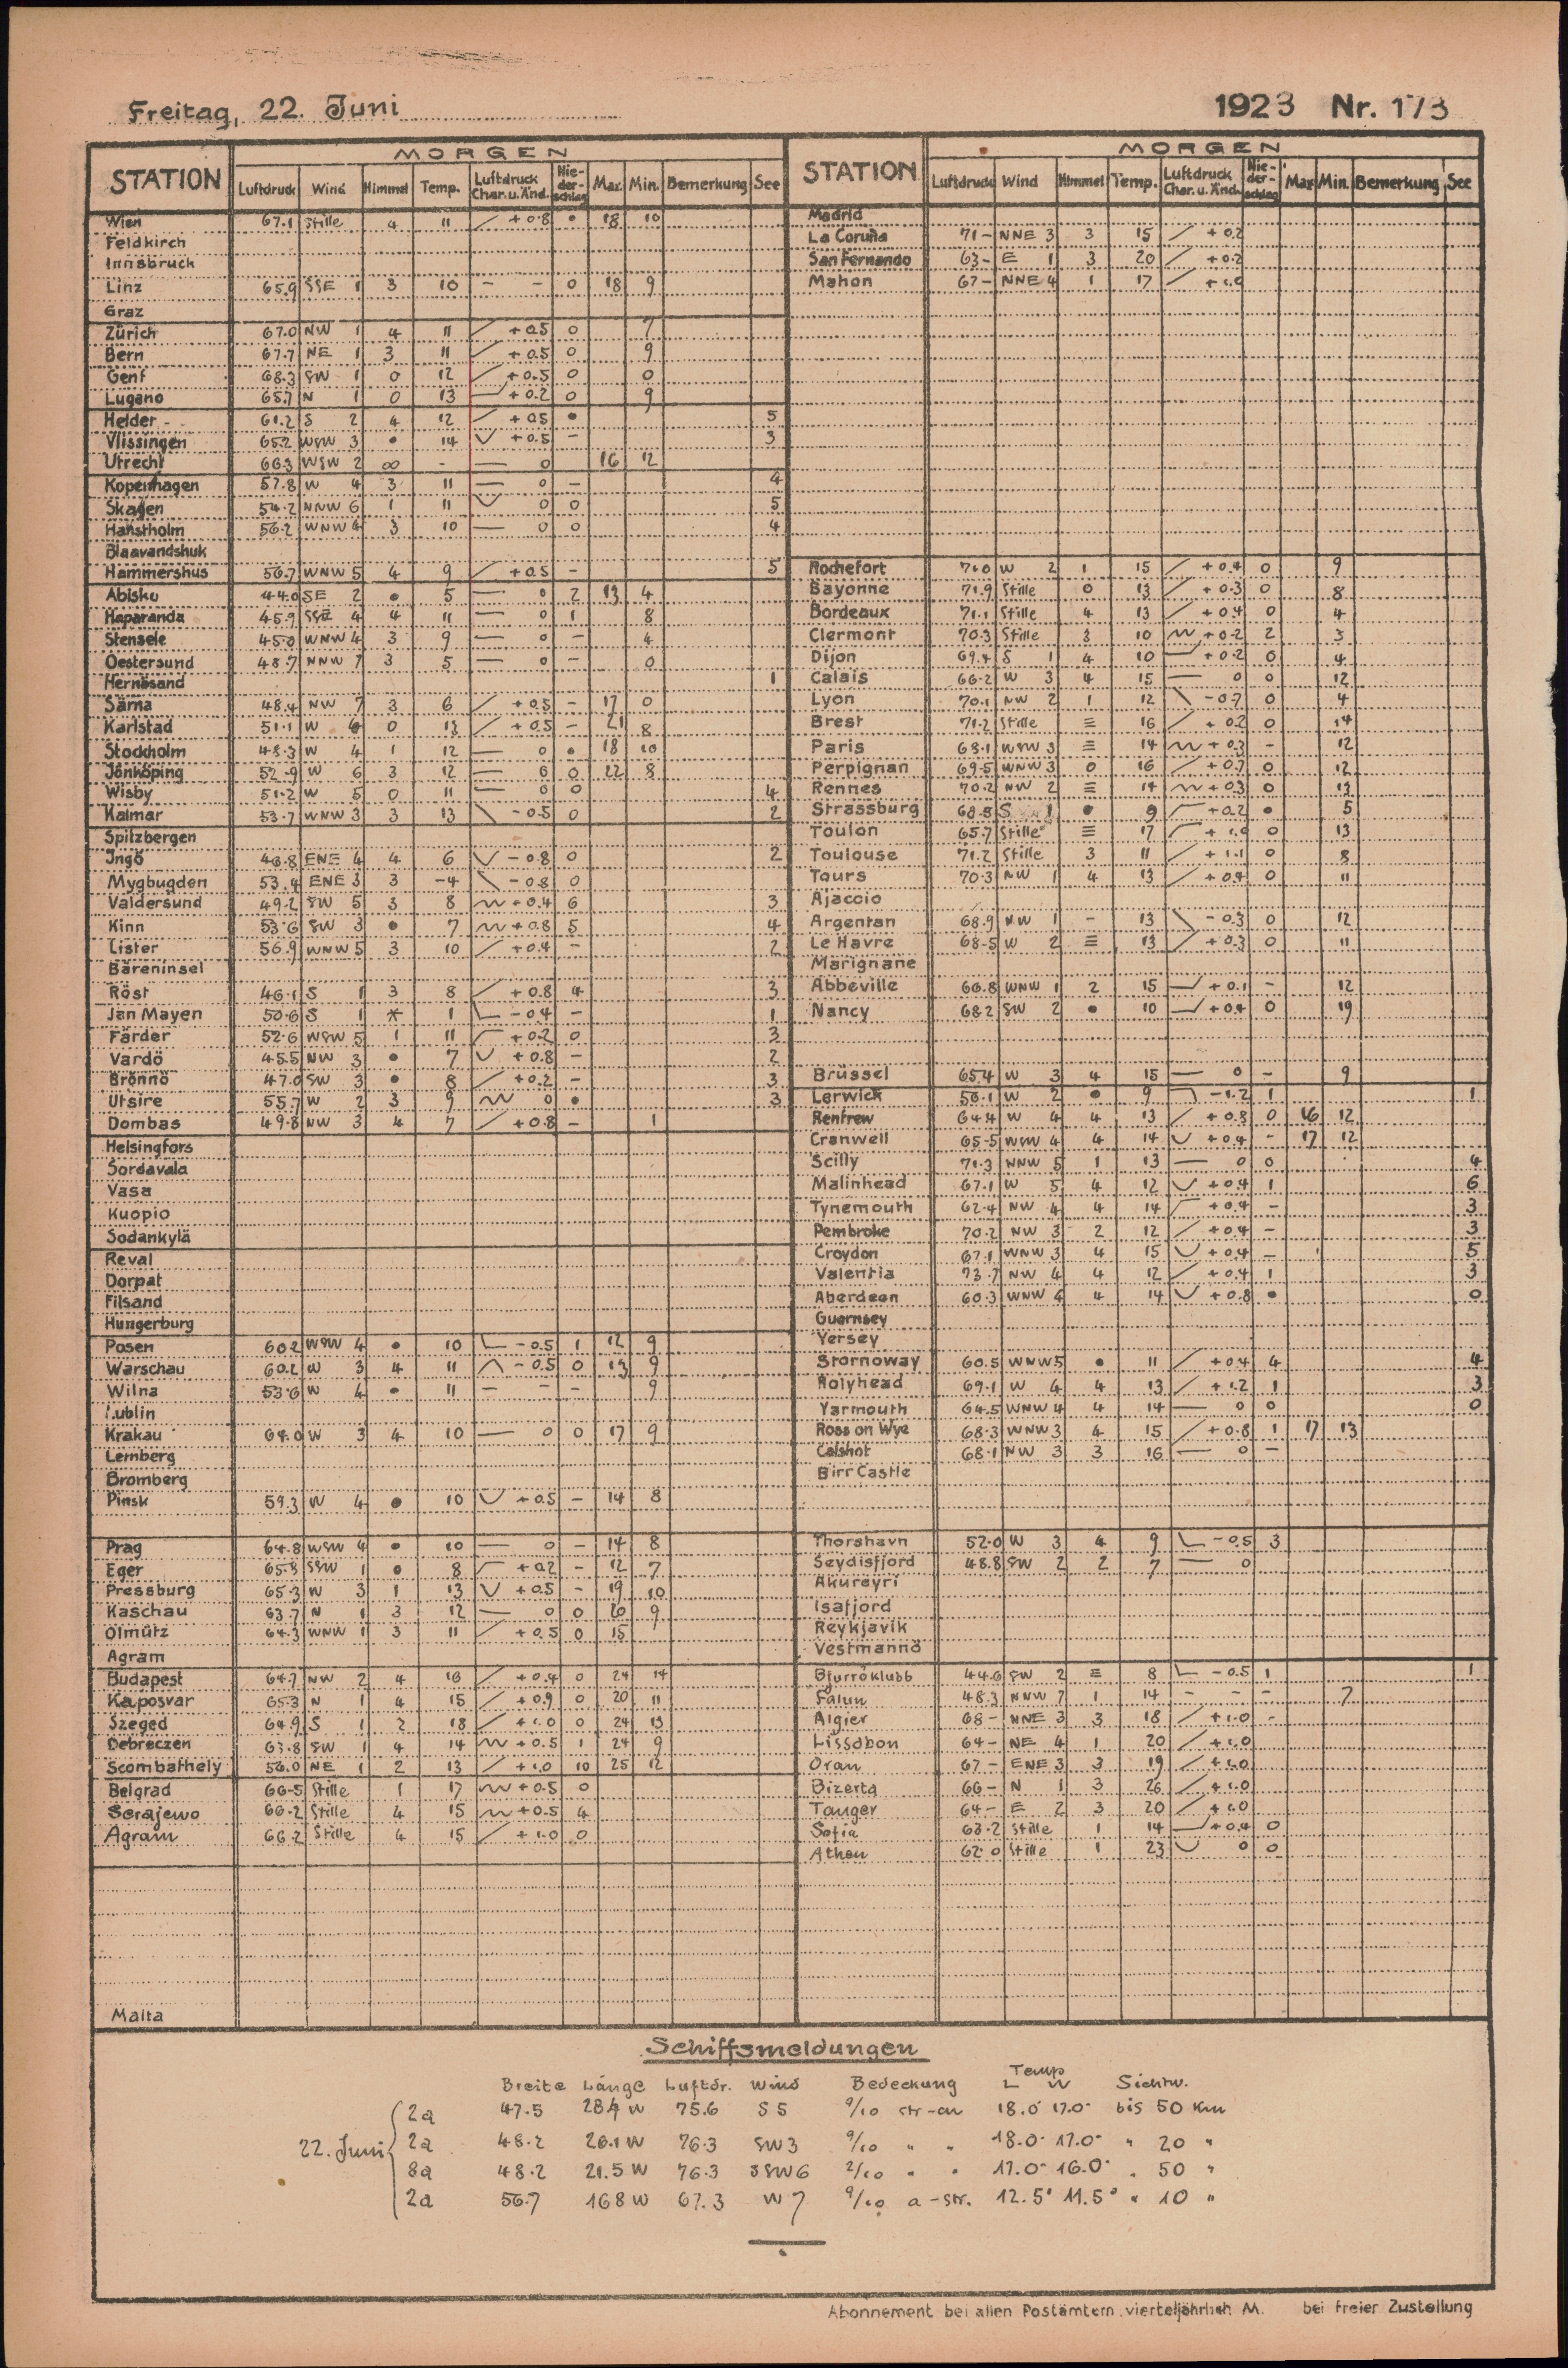 Freitag, 22. Juni
1923 Nr. 173
MORGEN
STATION Luftdruck Wind Himmel Temp. Luftdruck Char. u. Änd. Nie-der-schlag Max. Min. Bemerkung See
Wien 67.1 Stille 4 11 + 0.8 • 18 10
Feldkirch
Innsbruck
Linz 65.9 SSE 1 3 10 - - 0 18 9
Graz
Zürich 67.0 NW 1 4 11 + 0.5 0 7
Bern 67.7 NE 1 3 11 + 0.5 0 9
Genf 68.3 SW 1 0 12 + 0.5 0 0
Lugano 65.7 N 1 0 13 + 0.2 0 9
Helder 61.2 S 2 4 12 + 0.5 • 5
Vlissingen 65.2 WSW 3 • 14 + 0.5 - 3
Utrecht 66.3 WSW 2 ∞ - 0 16 12
Kopenhagen 57.8 W 4 3 11 0 - 4
Skagen 54.2 NNW 6 1 11 0 0 5
Hanstholm 56.2 WNW 4 3 10 0 0 4
Blaavandshuk
Hammershus 56.7 WNW 5 4 9 + 0.5 - 5
Abisko 44.0 SE 2 • 5 0 2 13 4
Haparanda 45.9 SSE 4 4 11 0 1 8
Stensele 45.0 WNW 4 3 9 0 - 4
Oestersund 48.7 NNW 7 3 5 0 - 0
Hernösand 1
Särna 48.4 NW 7 3 6 + 0.5 - 17 0
Karlstad 51.1 W 6 0 13 + 0.5 - 21 8
Stockholm 48.3 W 4 1 12 0 • 18 10
Jönköping 52.9 W 6 3 12 0 0 22 8
Wisby 51.2 W 5 0 11 0 0 4
Kalmar 53.7 WNW 3 3 13 - 0.5 0 2
Spitzbergen
Ingö 48.8 ENE 4 4 6 - 0.8 0 2
Mygbugden 53.4 ENE 3 3 -4 - 0.8 0
Valdersund 49.2 SW 5 3 8 + 0.4 6 3
Kinn 53.6 SW 3 • 7 + 0.8 5 4
Lister 56.9 WNW 5 3 10 + 0.4 - 2
Bäreninsel
Röst 46.1 S 1 3 8 + 0.8 4 3
Jan Mayen 50.6 S 1 * 1 - 0.4 - 1
Färder 52.6 WSW 5 1 11 + 0.2 0 3
Vardö 45.5 NW 3 • 7 + 0.8 - 2
Brönnö 47.0 SW 3 • 8 + 0.2 - 3
Utsire 55.7 W 2 3 9 0 • 3
Dombas 49.8 NW 3 4 7 + 0.8 - 1
Helsingfors
Sordavala
Vasa
Kuopio
Sodankylä
Reval
Dorpat
Filsand
Hungerburg
Posen 60.2 WSW 4 • 10 - 0.5 1 12 9
Warschau 60.2 W 3 4 11 - 0.5 0 13 9
Wilna 53.6 W 4 • 11 - - - 9
Lublin
Krakau 64.0 W 3 4 10 0 0 17 9
Lemberg
Bromberg
Pinsk 59.3 W 4 • 10 + 0.5 - 14 8
Prag 64.8 WSW 4 • 10 0 - 14 8
Eger 65.8 SSW 1 • 8 + 0.2 - 12 7
Pressburg 65.3 W 3 1 13 + 0.5 - 19 10
Kaschau 63.7 N 1 3 12 0 0 20 9
Olmütz 64.3 WNW 1 3 11 + 0.5 0 15
Agram
Budapest 64.7 NW 2 4 16 + 0.4 0 24 14
Kaposvar 65.3 N 1 4 15 + 0.9 0 20 11
Szeged 64.9 S 1 2 18 + 1.0 0 24 13
Debreczen 63.8 SW 1 4 14 + 0.5 1 24 9
Scombathely 56.0 NE 1 2 13 + 1.0 10 25 12
Belgrad 66.5 Stille 1 17 + 0.5 0
Serajewo 66.2 Stille 4 15 + 0.5 4
Agram 66.2 Stille 4 15 + 1.0 0
Malta
MORGEN
STATION Luftdruck Wind Himmel Temp. Luftdruck Char. u. Änd. Nie-der-schlag Max Min. Bemerkung See
Madrid
La Coruña 71 - NNE 3 3 15 + 0.2
San Fernando 63 - E 1 3 20 + 0.2
Mahon 67 - NNE 4 1 17 + 1.0
Rochefort 71.0 W 2 1 15 + 0.4 0 9
Bayonne 71.9 Stille 0 13 + 0.3 0 8
Bordeaux 71.1 Stille 4 13 + 0.4 0 4
Clermont 70.3 Stille 3 10 + 0.2 2 3
Dijon 69.4 S 1 4 10 + 0.2 0 4
Calais 66.2 W 3 4 15 0 0 12
Lyon 70.1 NW 2 1 12 - 0.7 0 4
Brest 71.2 Stille ≡ 16 + 0.2 0 14
Paris 68.1 WSW 3 ≡ 14 + 0.3 - 12
Perpignan 69.5 WNW 3 0 16 + 0.7 0 12
Rennes 70.2 NW 2 ≡ 14 + 0.3 0 13
Strassburg 68.8 S 1 • 9 + 0.2 • 5
Toulon 65.7 Stille ≡ 17 + 1.0 0 13
Toulouse 71.2 Stille 3 11 + 1.1 0 8
Tours 70.3 NW 1 4 13 + 0.4 0 11
Ajaccio
Argentan 68.9 NW 1 - 13 - 0.3 0 12
Le Havre 68.5 W 2 ≡ 13 + 0.3 0 11
Marignane
Abbeville 66.8 WNW 1 2 15 + 0.1 - 12
Nancy 68.2 SW 2 • 10 + 0.4 0 19
Brüssel 65.4 W 3 4 15 0 - 9
Lerwick 56.1 W 2 • 9 - 1.2 1 1
Renfrew 64.4 W 4 4 13 + 0.8 0 16 12
Cranwell 65.5 WSW 4 4 14 + 0.4 - 17 12
Scilly 71.3 NNW 5 1 13 0 0 4
Malinhead 67.1 W 5 4 12 + 0.4 1 6
Tynemouth 62.4 NW 4 4 14 + 0.4 - 3
Pembroke 70.2 NW 3 2 12 + 0.4 - 3
Croydon 67.1 WNW 3 4 15 + 0.4 - 5
Valentia 73.7 NW 4 4 12 + 0.4 1 3
Aberdeen 60.3 WNW 4 4 14 + 0.8 • 0
Guernsey
Yersey
Stornoway 60.5 WNW 5 • 11 + 0.4 4 4
Holyhead 69.1 W 4 4 13 + 1.2 1 3
Yarmouth 64.5 WNW 4 4 14 0 0 0
Ross on Wye 68.3 WNW 3 4 15 + 0.8 1 17 13
Calshot 68.1 NW 3 3 16 0 -
Birr Castle
Thorshavn 52.0 W 3 4 9 - 0.5 3
Seydisfjord 48.8 SW 2 2 7 0
Akureyri
Isafjord
Reykjavik
Vestmannö
Bjurröklubb 44.6 SW 2 ≡ 8 - 0.5 1 1
Falun 48.3 NNW 7 1 14 - - - 7
Algier 68 - NNE 3 3 18 + 1.0 -
Lissabon 64 - NE 4 1 20 + 1.0
Oran 67 - ENE 3 3 19 + 1.0
Bizerta 66 - N 1 3 26 + 1.0
Tanger 64 - E 2 3 20 + 1.0
Sofia 63.2 Stille 1 14 + 0.4 0
Athen 62.0 Stille 1 23 0 0
Schiffsmeldungen
Breite Länge Luftdr. Wind Bedeckung Temp L W Sichtw.
22. Juni
2a 47.5 28.4 W 75.6 S 5 9/10 str-cu 18.0° 17.0° bis 50 Km
2a 48.2 26.1 W 76.3 SW 3 9/10 " " 18.0° 17.0° " 20 "
8a 48.2 21.5 W 76.3 SSW 6 2/10 " " 17.0° 16.0° " 50 "
2a 56.7 16.8 W 67.3 W 7 9/10 a-str. 12.5° 11.5° " 10 "
Abonnement bei allen Postämtern vierteljährlich M. bei freier Zustellung